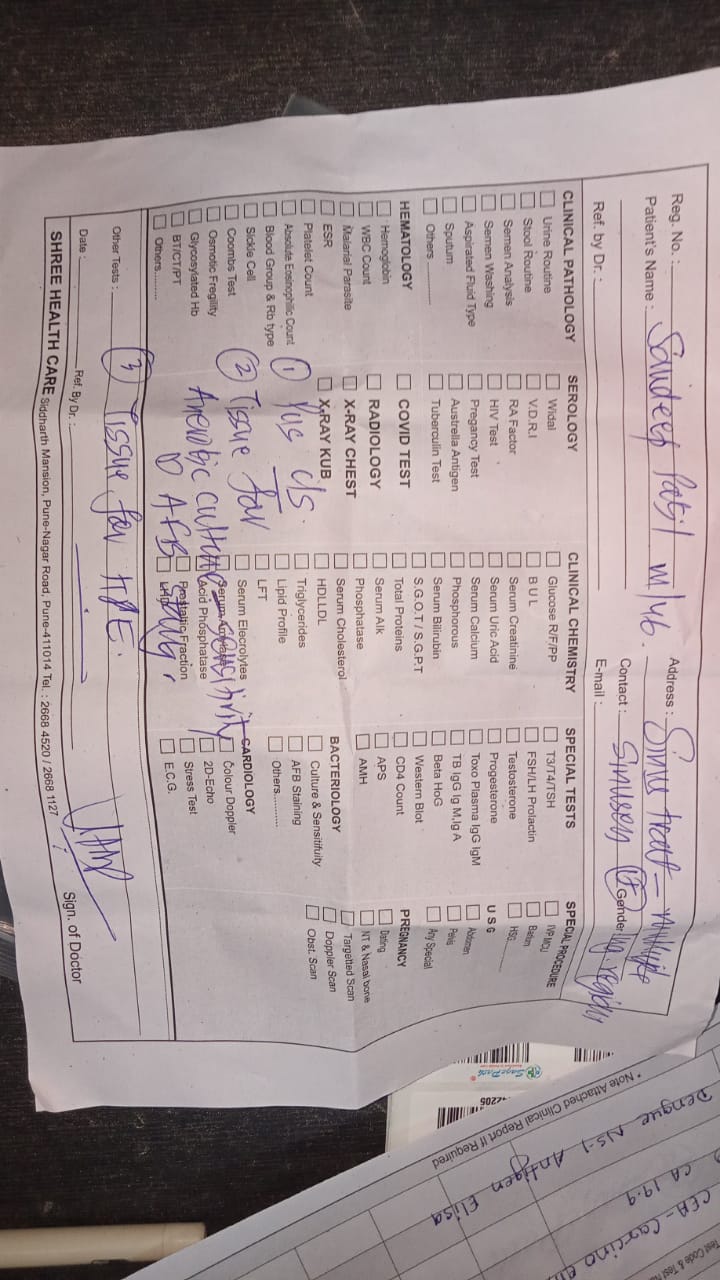 Reg. No. :
Patient's Name : Sandeep Patil M/46.
Address : Sinus tract - multiple
Contact : Sinuses
Gender
Ref. by Dr. :
E-mail :
CLINICAL PATHOLOGY
Urine Routine
Stool Routine
Semen Analysis
Semen Washing
Aspirated Fluid Type
Sputum
Others..........
HEMATOLOGY
Hemogloбin
WBC Count
Malarial Parasite
ESR
Platelet Count
Absolute Eosinophilic Count
Blood Group & Rb type
Sickle Cell
Coombs Test
Osmotic Fregility
Glycosylated Hb
BT/CT/PT
Others..........
SEROLOGY
Widal
V.D.R.I
RA Factor
HIV Test
Pregancy Test
Austrella Antigen
Tuberculin Test
COVID TEST
RADIOLOGY
X-RAY CHEST
X-RAY KUB
① Pus c/s.
② Tissue for
Anerobic culture sensitivity
AFB
CLINICAL CHEMISTRY
Glucose R/F/PP
B U L
Serum Creatinine
Serum Uric Acid
Serum Calcium
Phosphorous
Serum Bilirubin
S.G.O.T / S.G.P.T
Total Proteins
Serum Alk
Phosphatase
Serum Cholesterol
HDLLDL
Triglycerides
Lipid Profile
LFT
Serum Elecrolytes
Acid Phosphatase
Prostatic Fraction
SPECIAL TESTS
T3/T4/TSH
FSH/LH Prolactin
Testosterone
Progesterone
Toxo Plasma IgG IgM
TB IgG Ig M,Ig A
Beta HoG
Western Blot
CD4 Count
APS
AMH
BACTERIOLOGY
Culture & Sensitifuity
AFB Staining
Others..........
CARDIOLOGY
Colour Doppler
2D-Echo
Stress Test
E.C.G.
SPECIAL PROCEDURE
IVP MCU
Barium
HSG
U S G
Abdomen
Pelvis
Any Special
PREGNANCY
Dating
NT & Nasal bone
Targetted Scan
Doppler Scan
Obst. Scan
Other Tests : ③ Tissue for HPE.
Date :
Ref. By Dr. :
Sign. of Doctor
SHREE HEALTH CARE Siddharth Mansion, Pune-Nagar Road, Pune-411014 Tel. : 2668 4520 / 2668 1127
* Note Attached Clinical Report If Required
Dengue NS-1 Antigen Elisa
CA 19.9
CEA - Carcino
Test Code &